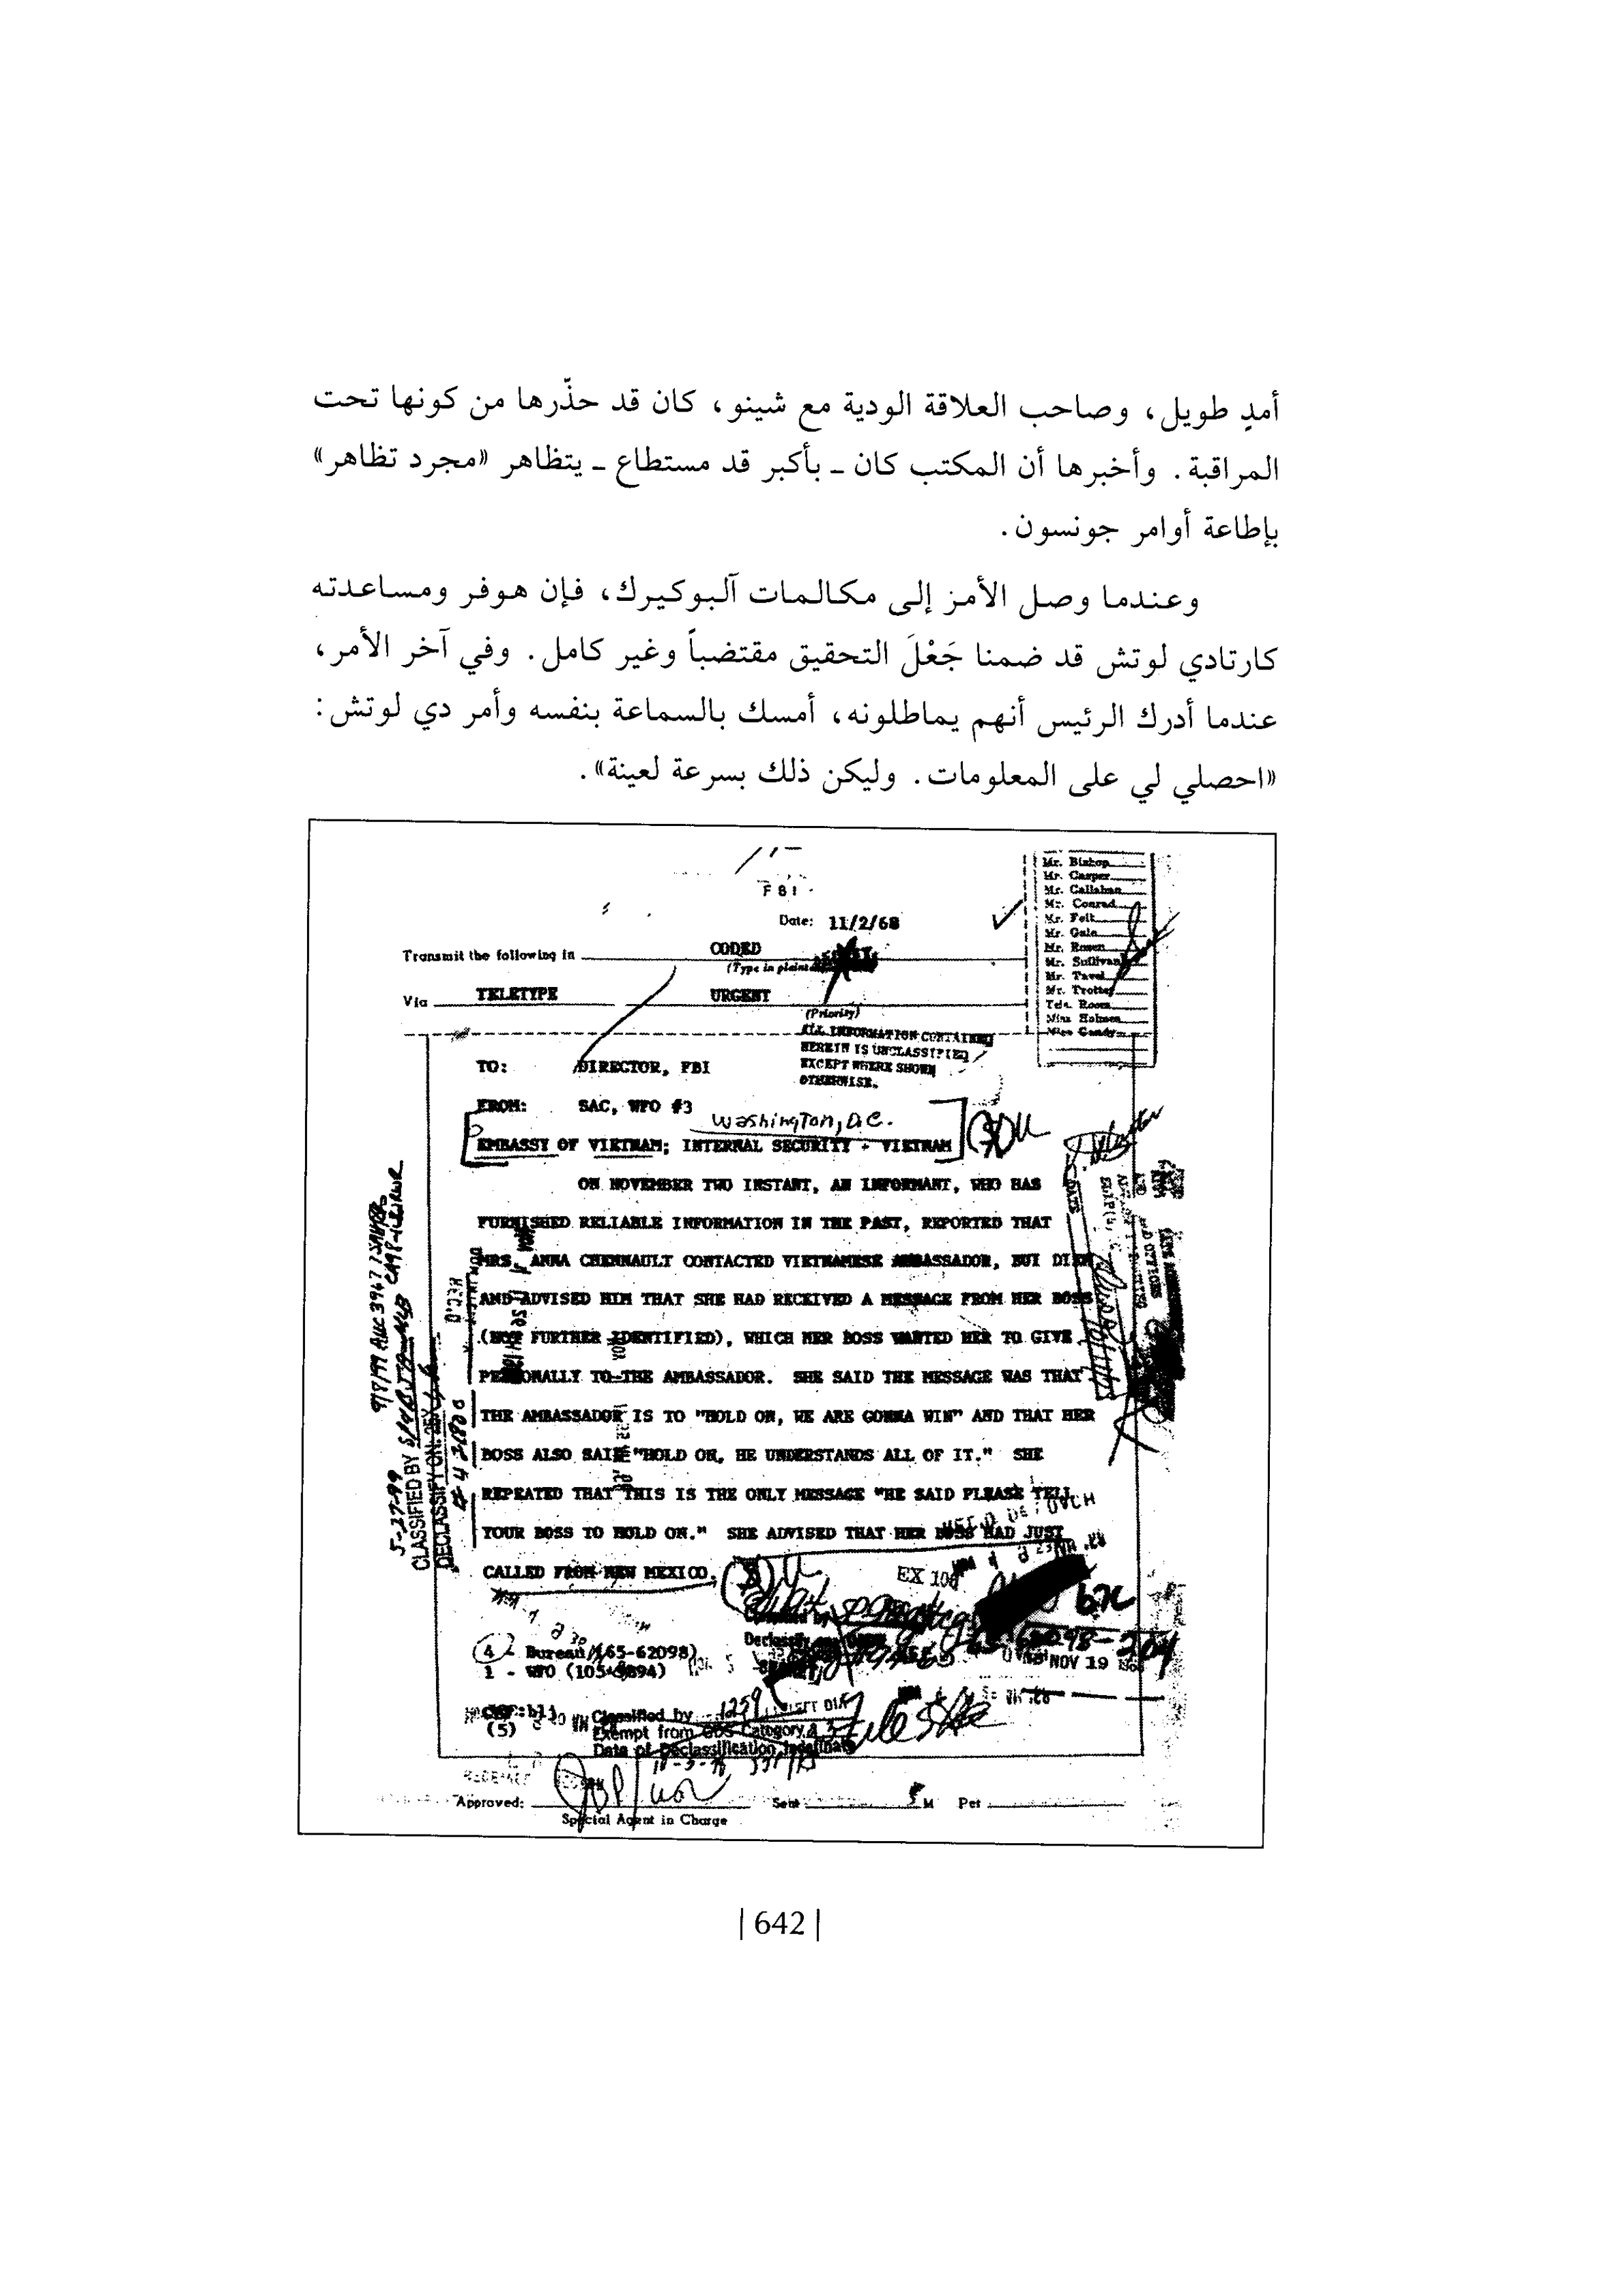 أمدٍ طويل، وصاحب العلاقة الودية مع شينو، كان قد حذّرها من كونها تحت
المراقبة. وأخبرها أن المكتب كان ـ بأكبر قد مستطاع ـ يتظاهر «مجرد تظاهر»
بإطاعة أوامر جونسون.
وعندما وصل الأمر إلى مكالمات آلبوكيرك، فإن هوفر ومساعدته
كارتادي لوتش قد ضمنا جَعْلَ التحقيق مقتضباً وغير كامل. وفي آخر الأمر،
عندما أدرك الرئيس أنهم يماطلونه، أمسك بالسماعة بنفسه وأمر دي لوتش:
«احصلي لي على المعلومات. وليكن ذلك بسرعة لعينة».
FBI
Date: 11/2/68
Transmit the following in CODED
(Type in
Via TELETYPE URGENT
(Priority)
Mr. Bishop
Mr. Casper
Mr. Callahan
Mr. Conrad
Mr. Felt
Mr. Gale
Mr. Rosen
Mr. Sullivan
Mr. Tavel
Mr. Trotter
Tele. Room
Miss Holmes
Miss Gandy
ALL INFORMATION CONTAINED
HEREIN IS UNCLASSIFIED
EXCEPT WHERE SHOWN
OTHERWISE.
TO: DIRECTOR, FBI
FROM: SAC, WFO #3
Washington, D.C.
EMBASSY OF VIETNAM; INTERNAL SECURITY - VIETNAM
ON NOVEMBER TWO INSTANT, AN INFORMANT, WHO HAS
FURNISHED RELIABLE INFORMATION IN THE PAST, REPORTED THAT
MRS. ANNA CHENNAULT CONTACTED VIETNAMESE AMBASSADOR, BUI DIEM
AND ADVISED HIM THAT SHE HAD RECEIVED A MESSAGE FROM HER BOSS
(NOT FURTHER IDENTIFIED), WHICH HER BOSS WANTED HER TO GIVE
PERSONALLY TO THE AMBASSADOR. SHE SAID THE MESSAGE WAS THAT
THE AMBASSADOR IS TO "HOLD ON, WE ARE GONNA WIN" AND THAT HER
BOSS ALSO SAID "HOLD ON, HE UNDERSTANDS ALL OF IT." SHE
REPEATED THAT THIS IS THE ONLY MESSAGE "HE SAID PLEASE TELL
YOUR BOSS TO HOLD ON." SHE ADVISED THAT HER BOSS HAD JUST
CALLED FROM NEW MEXICO.
5-27-99
CLASSIFIED BY
DECLASSIFY ON: 25X
EX 10
b7c
4 - Bureau (65-62098)
1 - WFO
NOV 19
(5)
Classified by 1259
Exempt from GDS Category
Date of Declassification Indefinite
Approved: Sent M Per
Special Agent in Charge
|642|